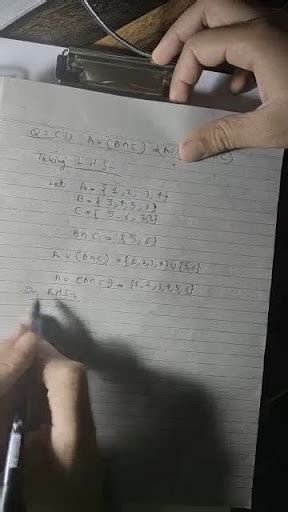 Q = (1) A∪(B∩C) = (A∪
Taking LHS
let A = {1, 2, 3, 4}
B = {3, 4, 5, 6}
C = { 5, 6, 7, 8}
B∩C = {5, 6}
A∪(B∩C) = {1, 2, 3, 4} ∪ {5, 6}
A∪(B∩C) = {1, 2, 3, 4, 5, 6}
On RHS